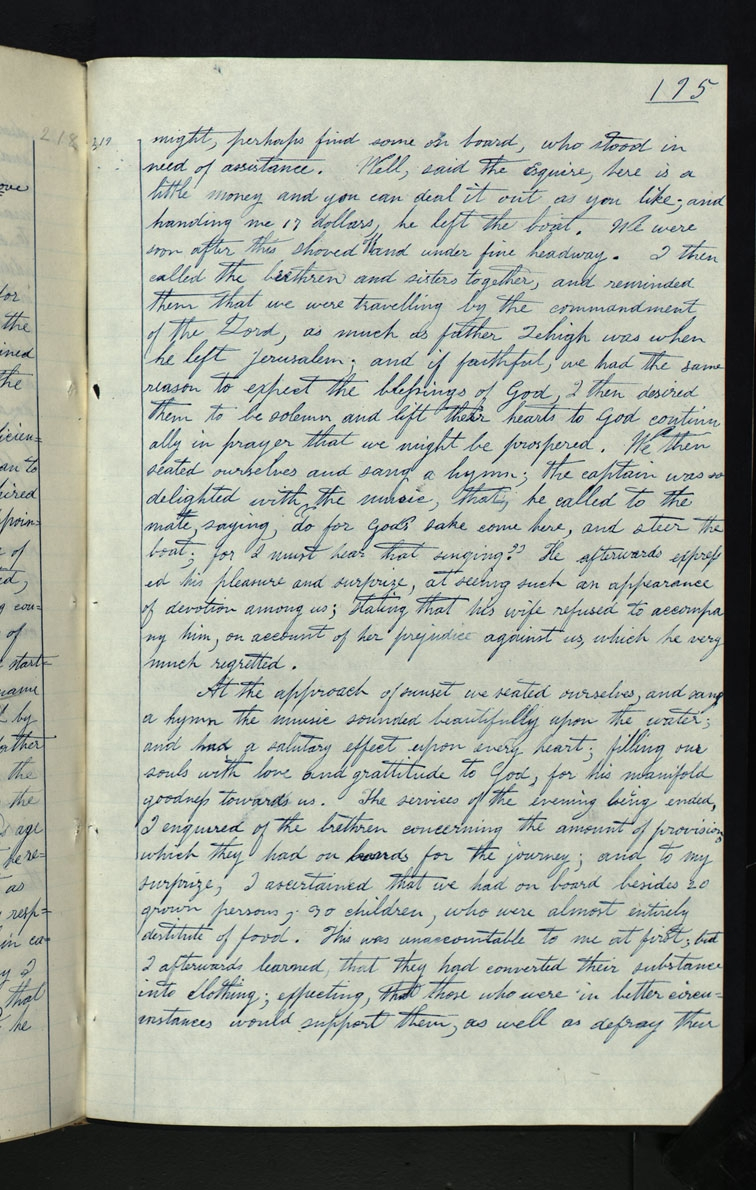 195
218
219
might, perhaps find some on board, who stood in
need of assistance. Well, said the Esquire, here is a
little money and you can deal it out as you like; and
handing me 17 dollars, he left the boat. We were
soon after this shoved off and under fine headway. I then
called the brethren and sisters together, and reminded
them that we were travelling by the commandment
of the Lord, as much as father Lehigh was when
he left Jerusalem; and if faithful, we had the same
reason to expect the blessings of God, I then desired
them to be solemn and lift their hearts to God continu
ally in prayer that we might be prospered. We then
seated ourselves and sang a hymn; the captain was so
delighted with the music, that, he called to the
mate, saying, "do for God's sake come here, and steer the
boat; for I must hear that singing." He afterwards express
ed his pleasure and surprize, at seeing such an appearance
of devotion among us; stating that his wife refused to accompa
ny him, on account of her prejudice against us, which he very
much regretted.
At the approach of sunset we seated ourselves, and sang
a hymn the music sounded beautifully upon the water;
and had a salutary effect upon every heart; filling our
souls with love and grattitude to God, for his manifold
goodness towards us. The services of the evening being ended,
I enquered of the brethren concerning the amount of provisions
which they had on board for the journey; and to my
surprize, I ascertained that we had on board besides 20
grown persons; 30 children, who were almost entirely
destitute of food. This was unaccountable to me at first; but
I afterwards learned, that they had converted their substance
into clothing; expecting, that those who were in better circu=
mstances would support them, as well as defray their